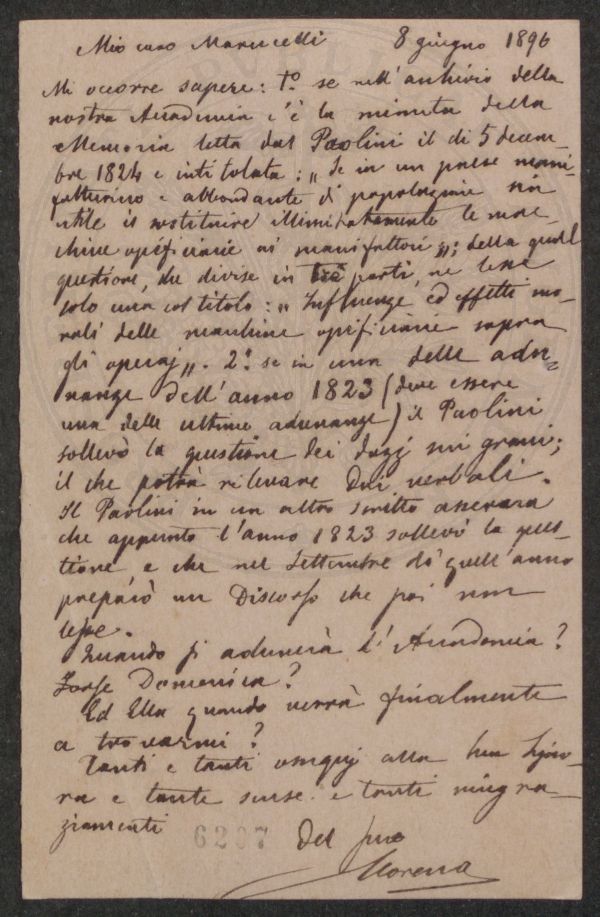 Mio caro Marucelli 8 giugno 1896
Mi occorre sapere: 1º. se nell'archivio della
nostra Accademia c'è la minuta della
Memoria letta dal Paolini il dì 5 decem-
bre 1824 e intitolata: „ Se in un paese mani-
fatturino e abbondante di popolazione sia
utile il sostituire illimitatamente le mac-
chine opificiarie ai manifattori „; della quale
questione, che divise in tre parti, ne lesse
solo una col titolo: „ Influenze ed effetti mo-
rali delle macchine opificiarie sopra
gli operaj „. 2º. se in una delle adu-
nanze dell'anno 1823 (deve essere
una delle ultime adunanze) il Paolini
sollevò la questione dei dazj sui grani;
il che potrà rilevare dai verbali.
Il Paolini in un altro scritto asserava
che appunto l'anno 1823 sollevò la ques-
tione e che nel Settembre di quell'anno
preparò un Discorso che poi non
lesse.
Quando si adunerà l'Accademia?
Forse Domenica?
Ed Ella quando verrà finalmente
a trovarmi?
Tanti e tanti ossequj alla sua Signo-
ra e tante scuse e tanti ringra-
ziamenti 6207 del suo
Morena